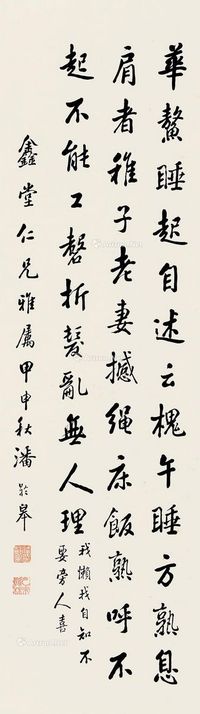 華鰲睡起自述云槐午睡方熟息
肩者稚子老妻撼绳床飯熟呼不
起不能工磬折髮亂無人理
我懶我自知不
要旁人喜
鑫堂仁兄雅属甲申秋潘齡皋